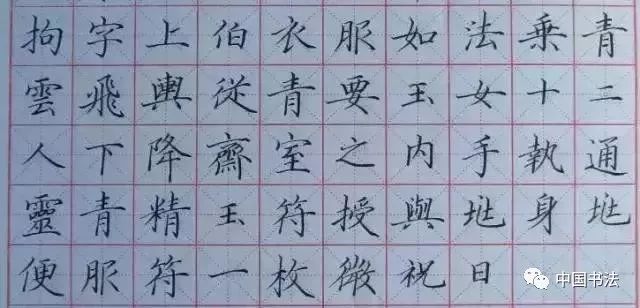 拘字上伯衣服如法乗青
雲飛輿從青要玉女十二
人下降齋室之内手執通
靈青精玉符授與兆身兆
便服符一枚微祝日
中国书法